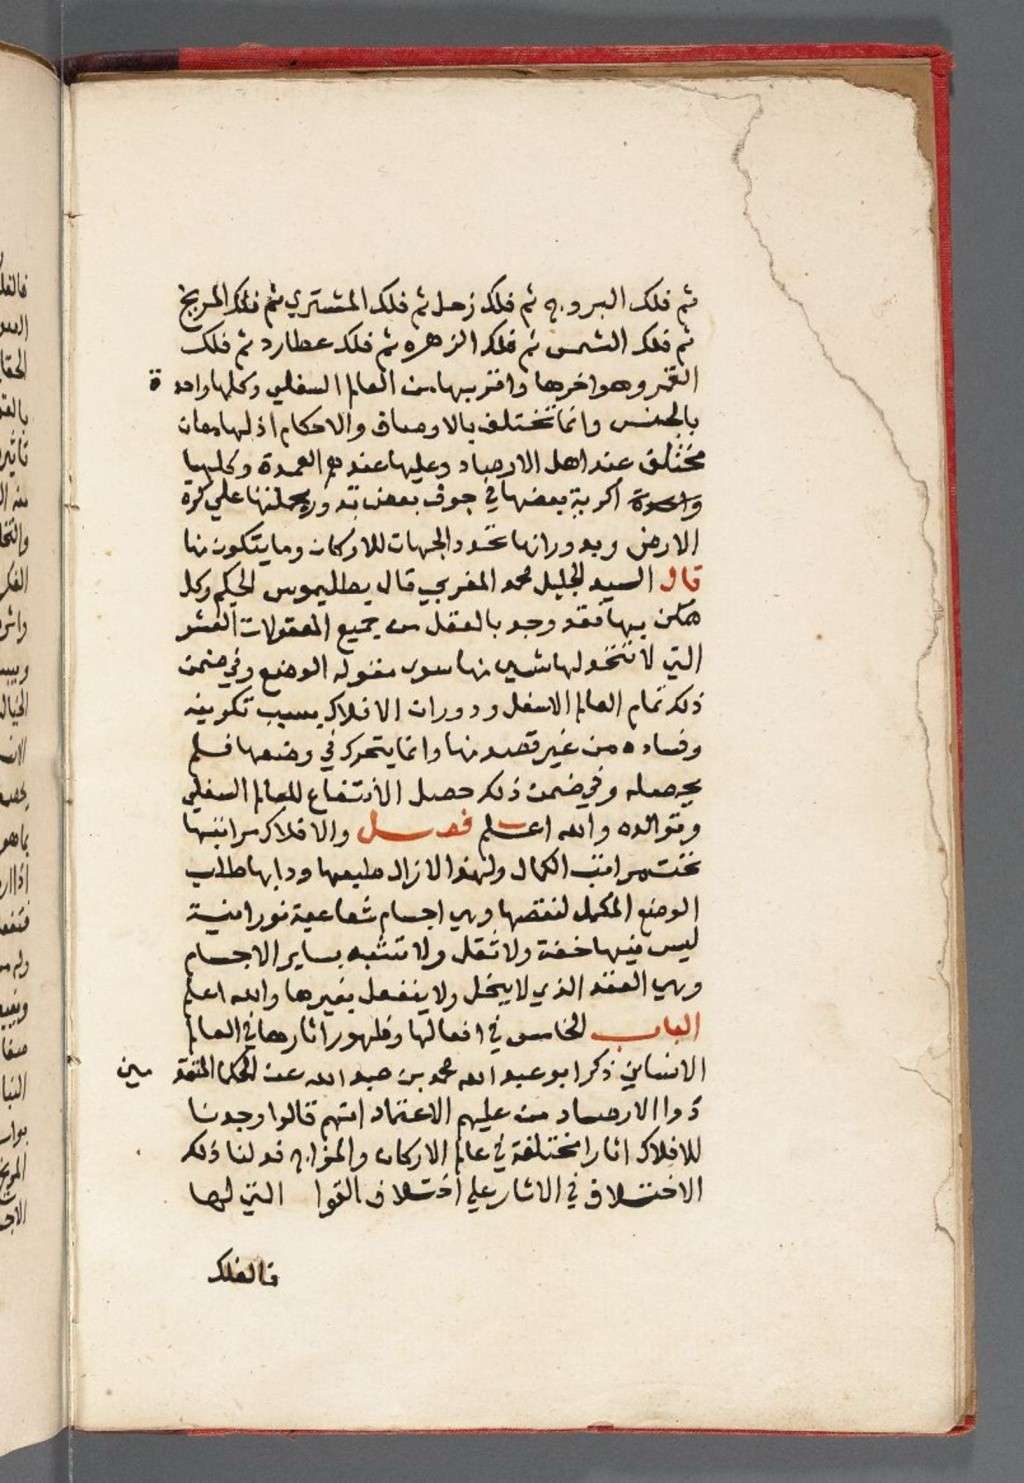 ثم فلك البروج ثم فلك زحل ثم فلك المشتري ثم فلك المريخ
ثم فلك الشمس ثم فلك الزهره ثم فلك عطارد ثم فلك
القمر وهو اخرها واقربها من العالم السفلي وكلها واحدة
بالجنس وانما تختلف بالاوصاف والاحكام اذ لها صفات
عند اهل الارصاد وعليها عندهم العمدة وكلها
واحدة اكرية بعضها في جوف بعض تدور بجملتها علي كرة
الارض وبدورانها تحدد الجهات للاركان وما يتكون منها
قال السيد الجليل محمد المغربي قال بطليموس الحكيم وكل
ممكن بها فقد وجد بالعقل من جميع المعقولات العشر
التي لا لها شي منها سوي مقوله الوضع وفي ضمن
ذلك تمام العالم الاسفل ودورات الافلاك بسبب تكوينه
وفساده من غير قصد منها وانما يتحرك في وضعها فلم
يحصله وفي ضمن ذلك حصل الانتفاع للعالم السفلي
وتوالده والله اعلم فصل والافلاك مراتبها
تحت مراتب الكمال ولهذا لا زال طبيعها ودابها طلب
الوضع المكمل لنقصها وهي اجسام شعاعية نورانية
ليس فيها خفة ولا ثقل ولا تتشبه بساير الاجسام
وهي العقد الذي لا ينحل ولا ينفعل بغيرها والله اعلم
الباب الخامس في افعالها وظهور اثارها في العالم
الانساني ذكر ابو عبد الله محمد بن عبد الله عن الحكما المتقدمين
ذوا الارصاد من عليهم الاعتماد انهم قالوا وجدنا
للافلاك اثارا مختلفة في عالم الاركان والمزاج فدلنا ذلك
الاختلاف في الاثار علي اختلاف القوا التي لها
فالفلك